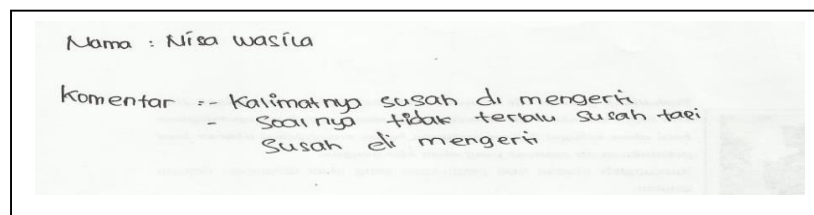 Nama : Nisa wasila
Komentar :- Kalimatnya susah di mengerti
- Soalnya tidak terlalu susah tapi
susah di mengerti